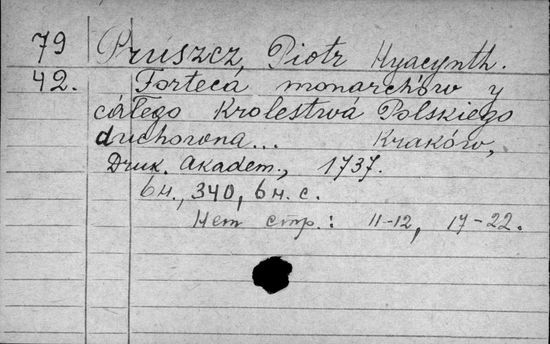 79 Pruszcz, Piotr Hyacynth.
42. Forteca monarchów y
całego Krolestwá Polskiego
duchowna... Kraków,
Druk. Akadem., 1737.
6 н., 340, 6 н. с.
Нет стр.: 11-12, 17-22.